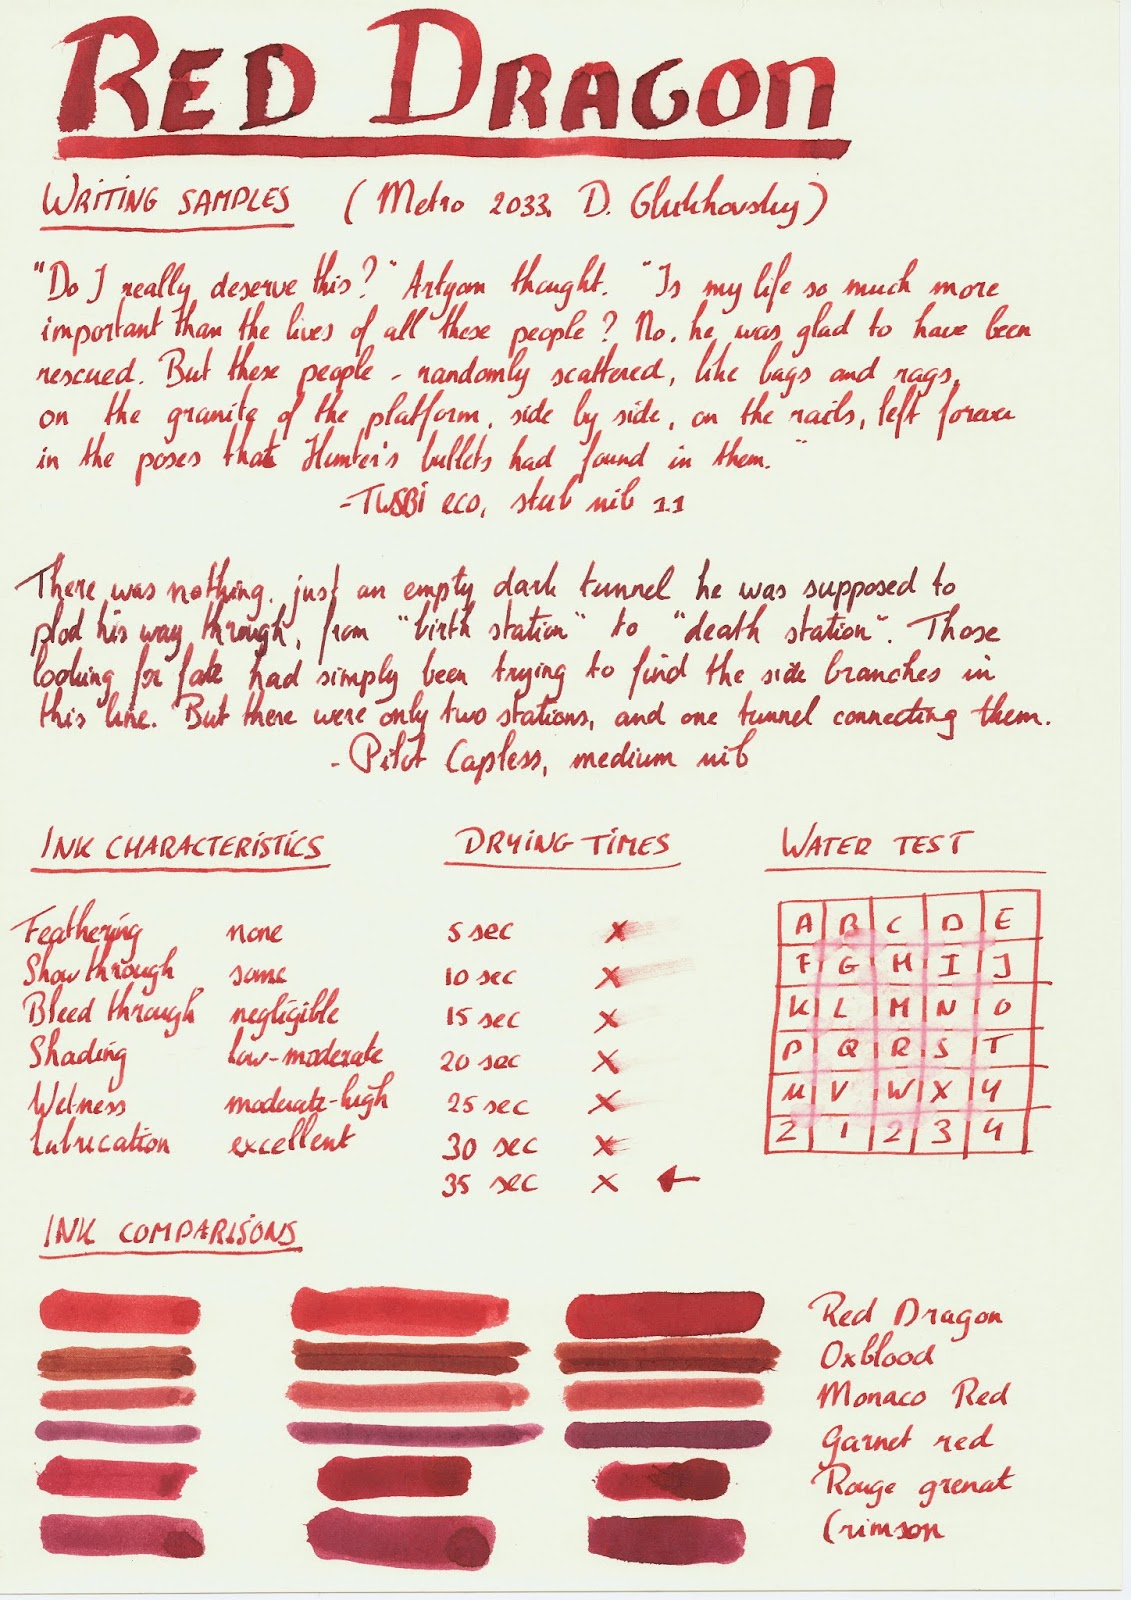 RED DRAGON
WRITING SAMPLES (Metro 2033, D. Glukhovsky)
"Do I really deserve this?" Artyom thought. "Is my life so much more
important than the lives of all these people? No, he was glad to have been
rescued. But these people - randomly scattered, like bags and rags,
on the granite of the platform, side by side, on the rails, left forever
in the poses that Hunter's bullets had found in them."
-TWSBI eco, stub nib 1.1
There was nothing, just an empty dark tunnel he was supposed to
plod his way through, from "birth station" to "death station". Those
looking for fate had simply been trying to find the side branches in
this line. But there were only two stations, and one tunnel connecting them.
- Pilot Capless, medium nib
INK CHARACTERISTICS
Feathering none
Show through some
Bleed through negligible
Shading low-moderate
Wetness moderate-high
Lubrication excellent
DRYING TIMES
5 sec x
10 sec x
15 sec x
20 sec x
25 sec x
30 sec x
35 sec x ←
WATER TEST
A B C D E
F G H I J
K L M N O
P Q R S T
U V W X Y
Z 1 2 3 4
INK COMPARISONS
Red Dragon
Oxblood
Monaco Red
Garnet red
Rouge grenat
Crimson